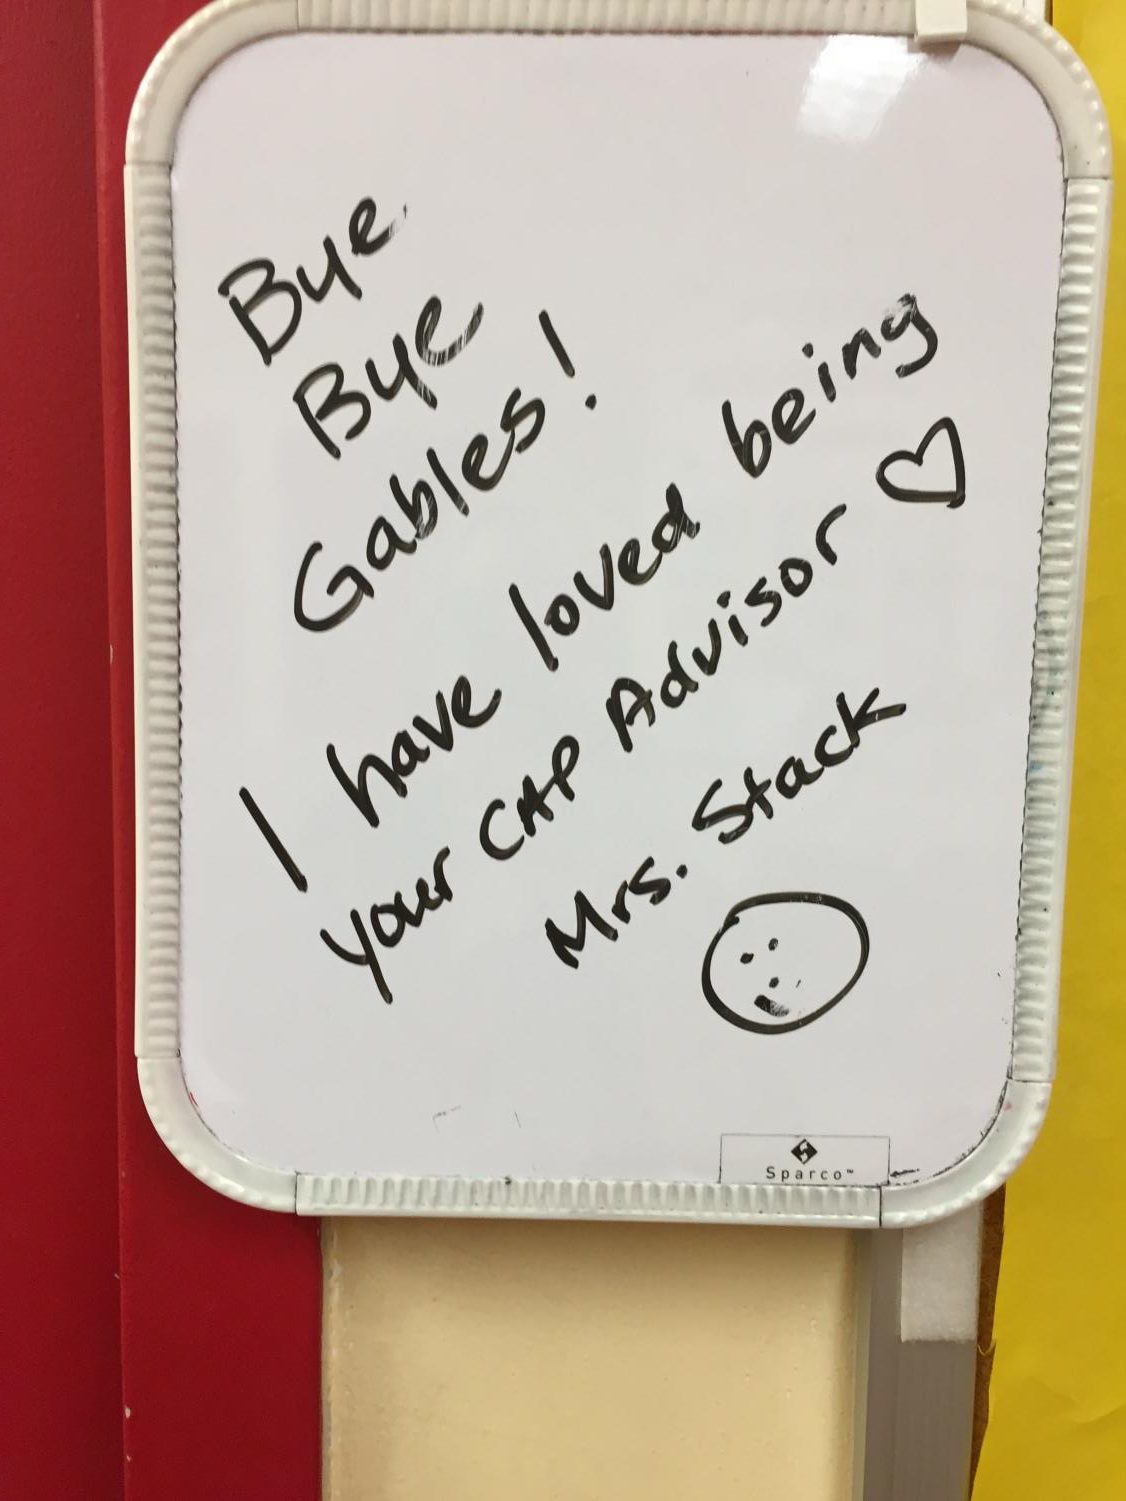 Bye
Bye
Gables!
I have loved being
your CAP Advisor
Mrs. Stack
Sparco™